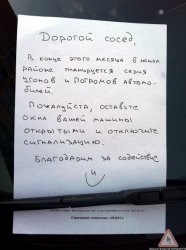 Дорогой сосед,
В конце этого месяца в нашем
районе планируется серия
угонов и погромов автомо-
билей.
Пожалуйста, оставьте
окна вашей машины
открытыми и отключите
сигнализацию.
Благодарим за содействие